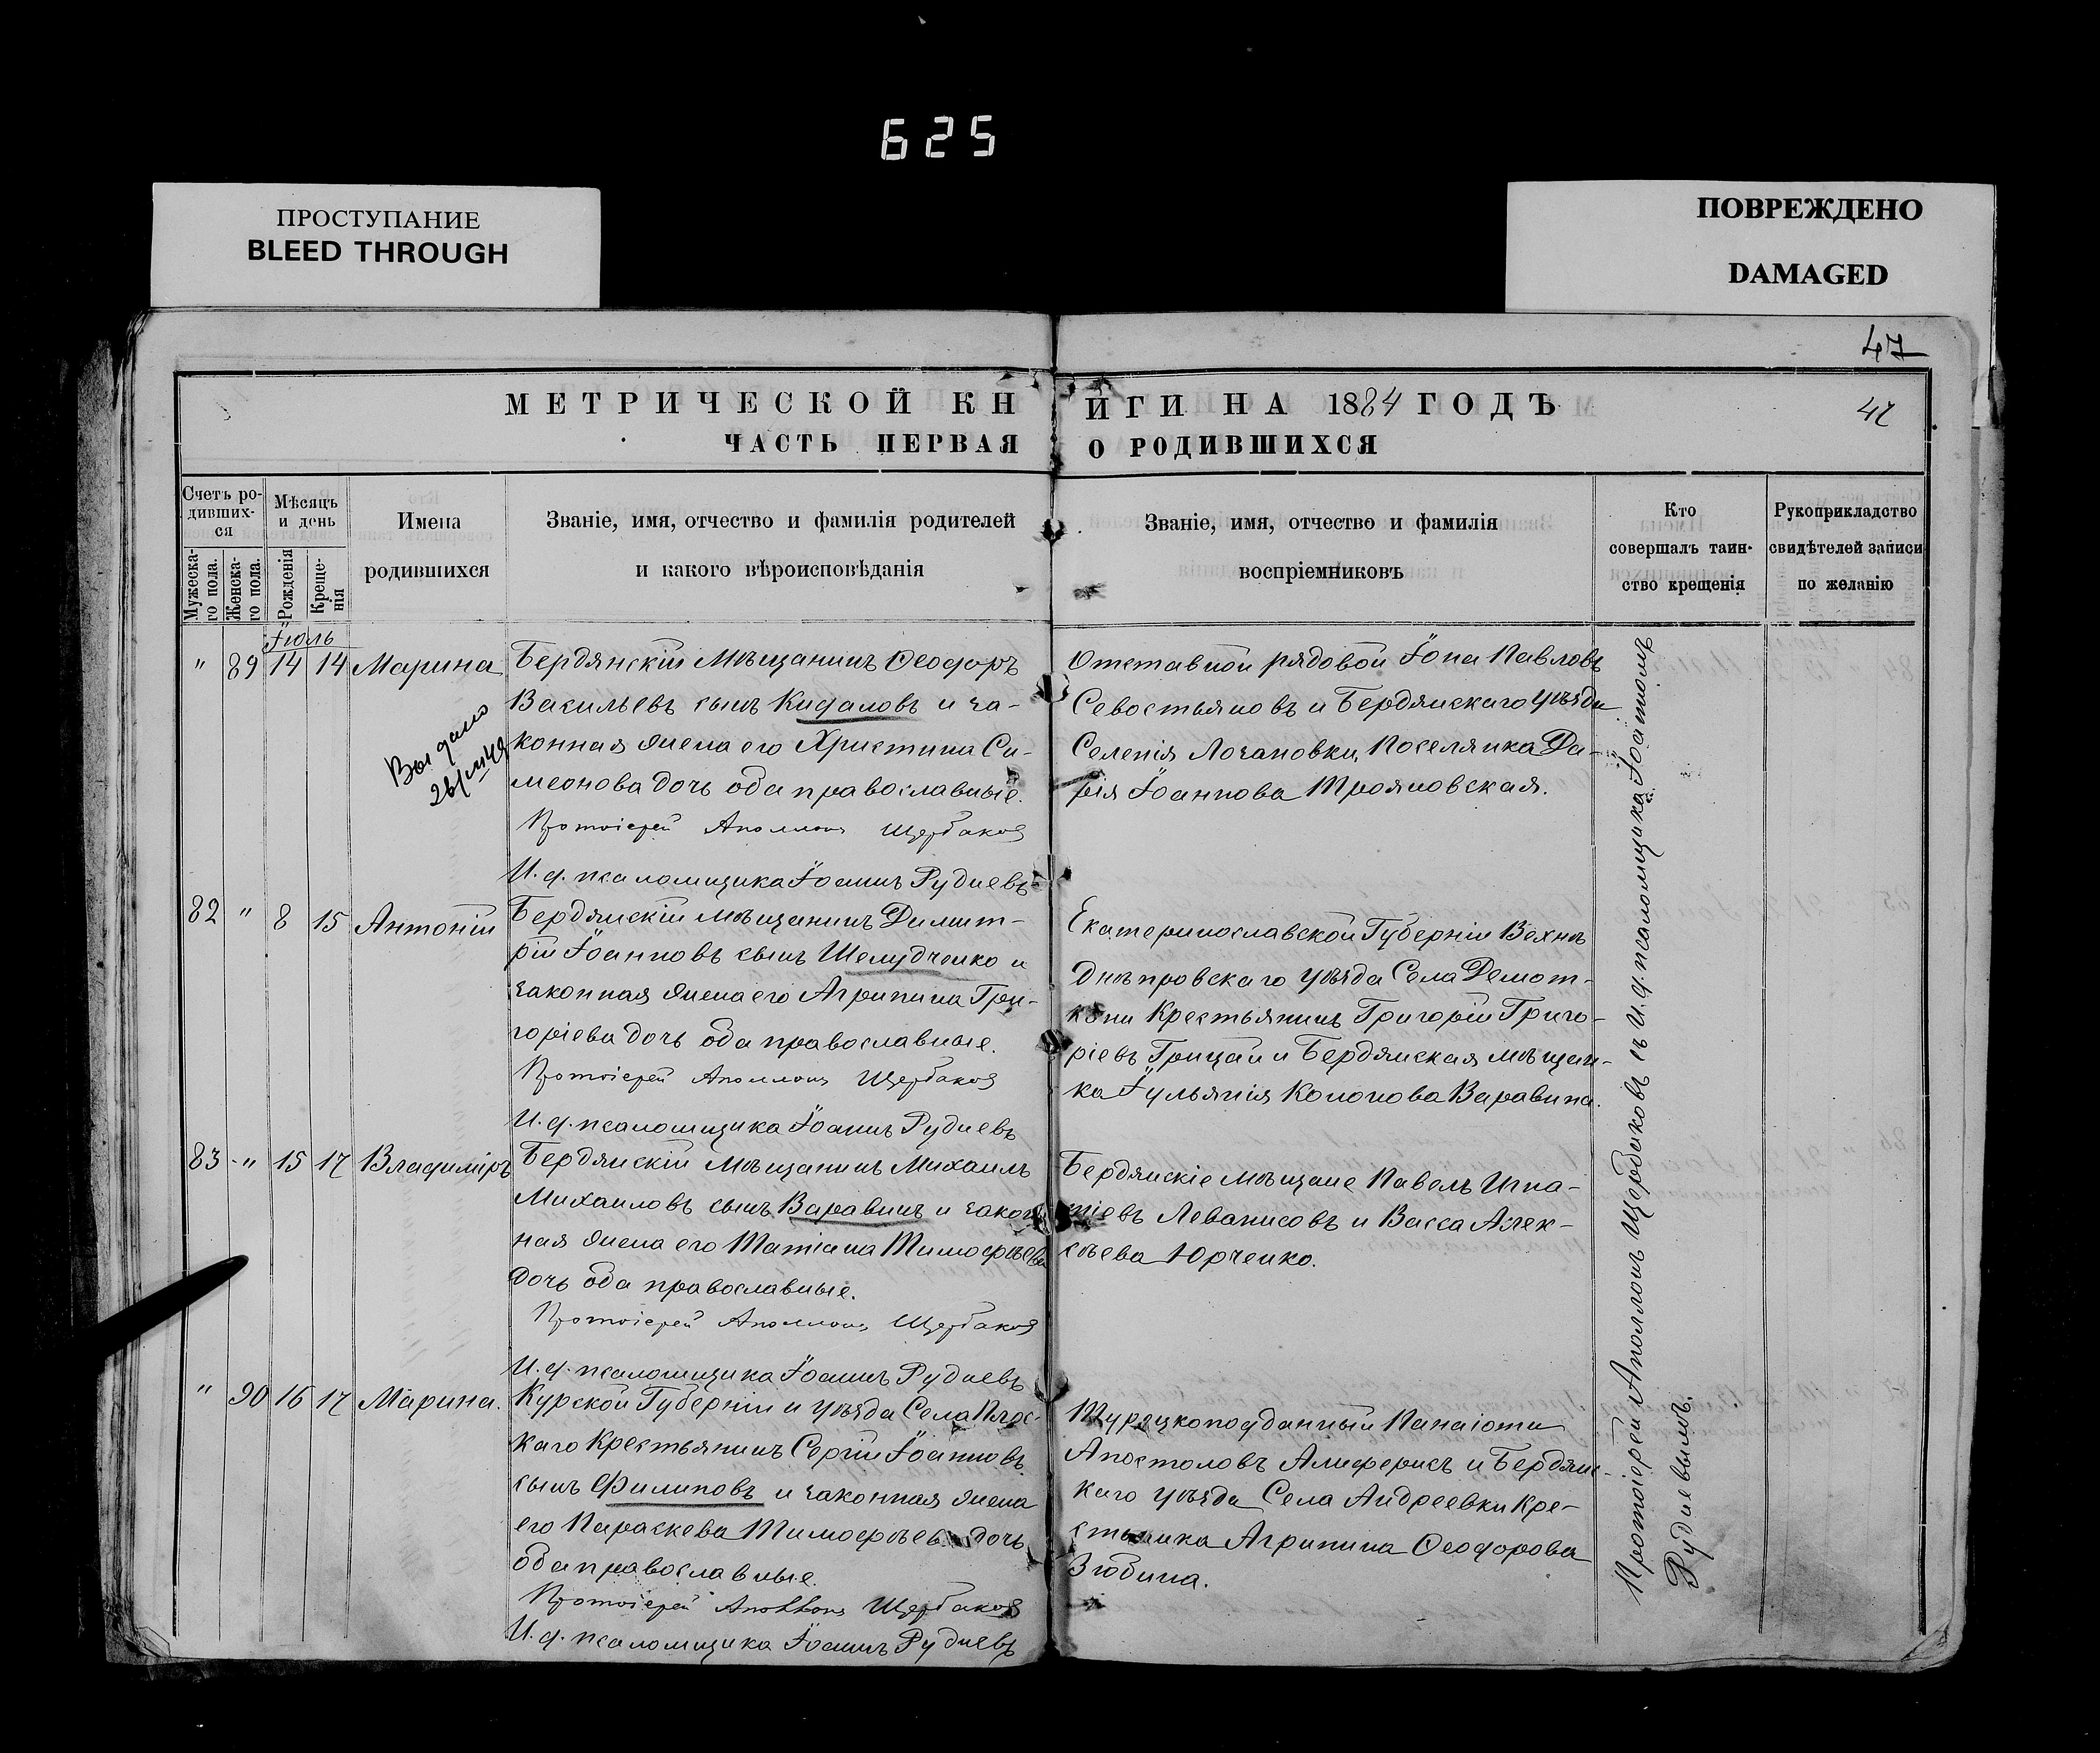 625
ПРОСТУПАНИЕ
BLEED THROUGH
ПОВРЕЖДЕНО
DAMAGED
47
42
МЕТРИЧЕСКОЙ КНИГИ НА 1884 ГОДЪ
ЧАСТЬ ПЕРВАЯ О РОДИВШИХСЯ
Счетъ ро-
дивших-
ся
Мужеска-
го пола.
Женска-
го пола.
Мѣсяцъ
и день
Рожденія
Креще-
нія
Имена
родившихся
Званіе, имя, отчество и фамилія родителей
и какого вѣроисповѣданія
Званіе, имя, отчество и фамилія
воспріемниковъ
Кто
совершалъ таин-
ство крещенія
Рукоприкладство
свидѣтелей записи
по желанію
Іюль
" 89 14 14 Марина
Выдано
Бердянскій Мѣщанинъ Ѳеодоръ
Васильевъ сынъ Кидаловъ и за-
конная жена его Христина Си-
меонова дочь оба православные.
Протоіерей Аполлонъ Щербаковъ
И. д. псаломщика Іоаннъ Рудневъ
Отставной рядовой Іона Павловъ
Севостьяновъ и Бердянскаго уѣзда
Селенія Лозановки, Поселянка Да-
рія Іоаннова Трояновская.
82 " 8 15 Антоній
Бердянскій мѣщанинъ Димит-
рій Іоанновъ сынъ Шелудченко и
законная жена его Агрипина Гри-
горіева дочь оба православные.
Протоіерей Аполлонъ Щербаковъ
И. д. псаломщика Іоаннъ Рудневъ
Екатеринославской Губерніи Вехнѣ
Днѣпровскаго уѣзда Села Демот-
кони Крестьянинъ Григорій Григо-
ріевъ Грицай и Бердянская мѣщан-
ка Іульянія Кононова Варавина.
83 " 15 17 Владиміръ
Бердянскій Мѣщанинъ Михаилъ
Михаиловъ сынъ Варавинъ и закон
ная жена его Татіана Тимоѳѣева
дочь оба православные.
Протоіерей Аполлонъ Щербаковъ
И. д. псаломщика Іоаннъ Рудневъ
Бердянскіе мѣщане Павелъ Игна-
тіевъ Леванисовъ и Васса Алек-
сѣева Юрченко.
" 90 16 17 Марина.
Курской Губерніи и уѣзда Села Плос-
каго Крестьянинъ Сергій Іоанновъ
сынъ Филиповъ и законная жена
его Параскева Тимоѳѣева дочь
оба православные.
Протоіерей Аполлонъ Щербаковъ
И. д. псаломщика Іоаннъ Рудневъ
Турецкоподданный Панаіоти
Апостоловъ Алиферисъ и Бердянс-
каго уѣзда Села Андреевки Кре-
стьянка Агрипина Ѳеодорова
Зюбина.
Протоіерей Аполлонъ Щербаковъ съ И. д. псаломщика Іоанномъ
Рудневымъ.